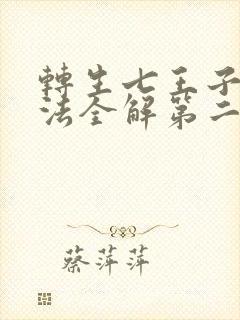 轉生七王子
法全解第二
蔡萍萍